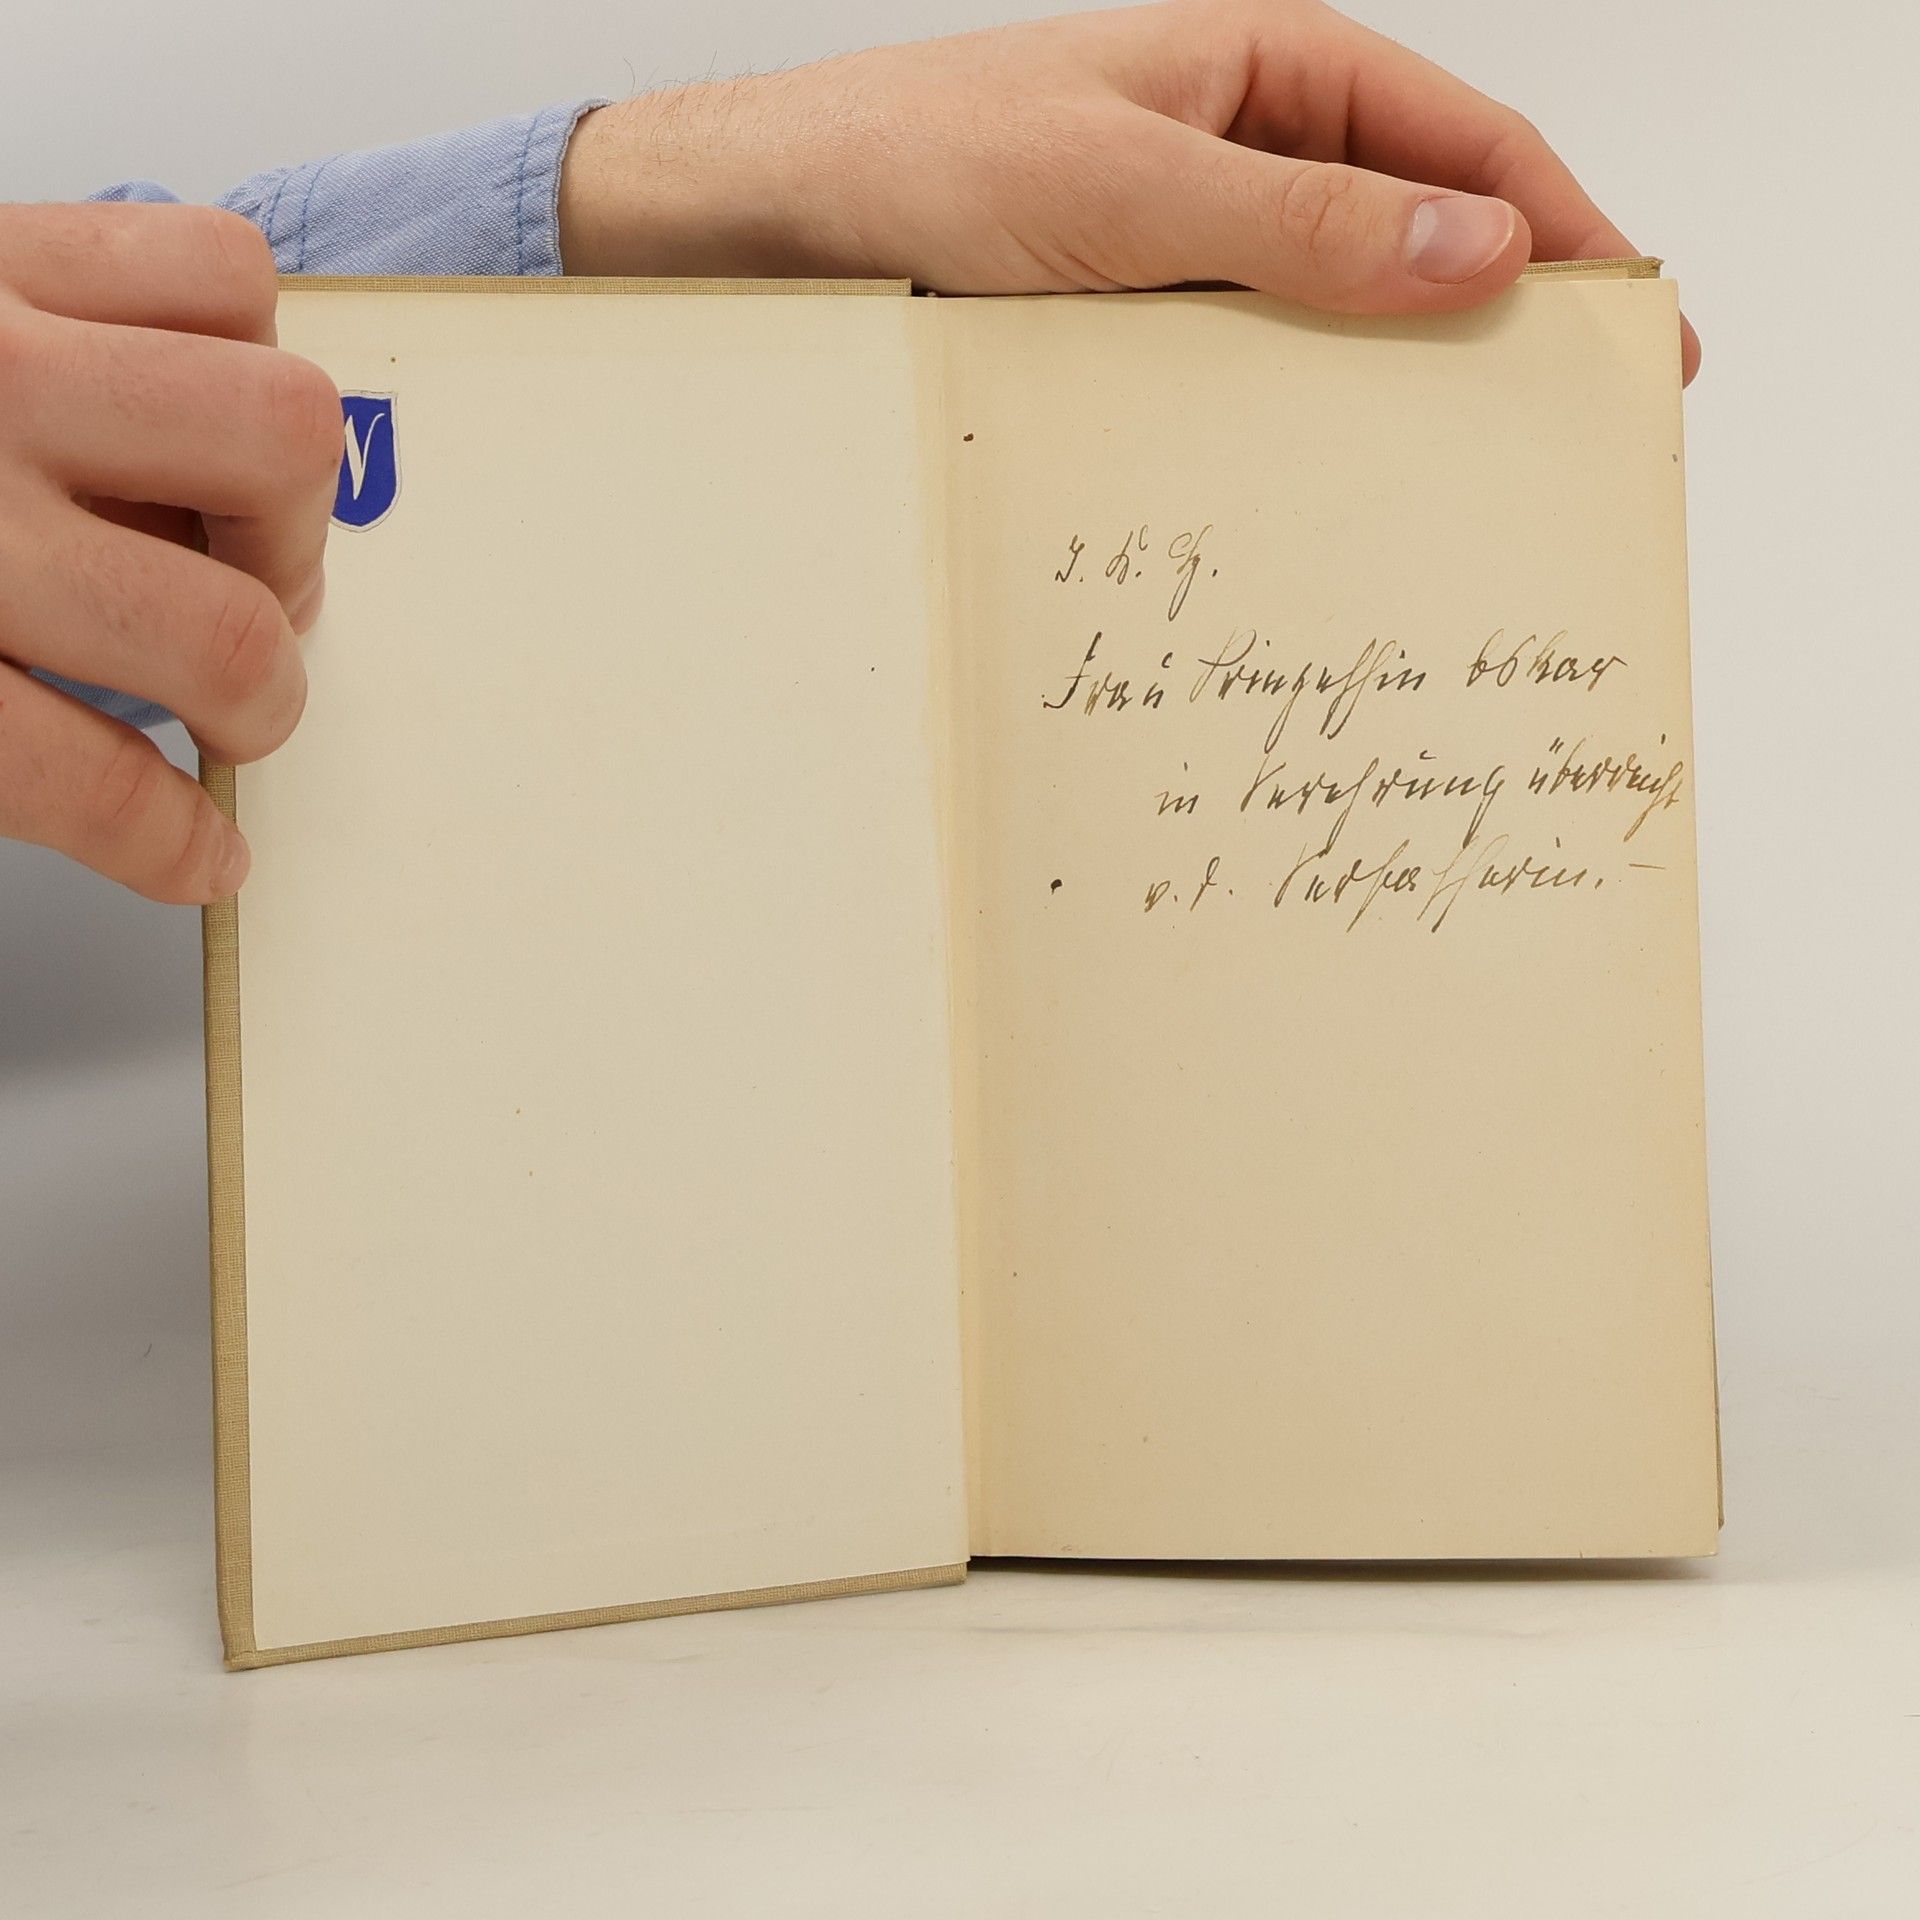 N
I. K. H.
Frau Prinzessin Oskar
in Verehrung überreicht
v. d. Verfasserin. –